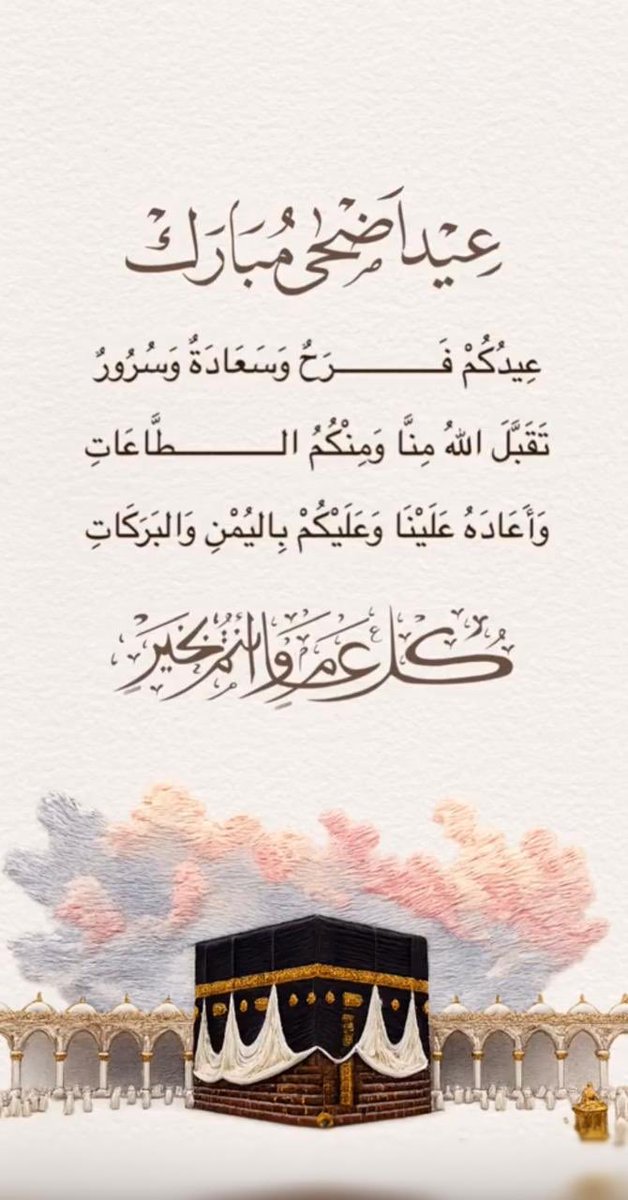 عِيْد اَضْحَى مُبَارَك
عِيدُكُمْ فَـــــــرَحٌ وَسَعَادَةٌ وَسُرُورٌ
تَقَبَّلَ اللهُ مِنَّا وَمِنْكُمُ الـــــــطَّاعَاتِ
وَأَعَادَهُ عَلَيْنَا وَعَلَيْكُمْ بِاليُمْنِ وَالبَرَكَاتِ
كُل عَام وَانْتُم بِخَيْرٍ